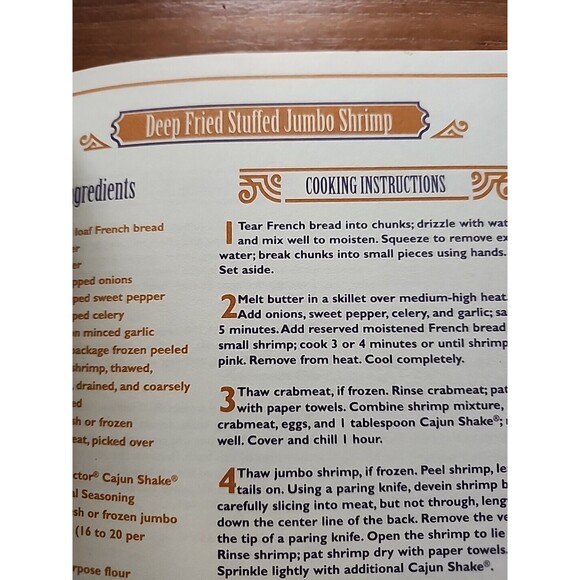 Deep Fried Stuffed Jumbo Shrimp
gredients
loaf French bread
er
er
pped onions
ped sweet pepper
ped celery
on minced garlic
ackage frozen peeled
shrimp, thawed,
, drained, and coarsely
ed
sh or frozen
eat, picked over
ctor® Cajun Shake®
al Seasoning
sh or frozen jumbo
(16 to 20 per
rpose flour
COOKING INSTRUCTIONS
1 Tear French bread into chunks; drizzle with wat
and mix well to moisten. Squeeze to remove ex
water; break chunks into small pieces using hands.
Set aside.
2 Melt butter in a skillet over medium-high heat.
Add onions, sweet pepper, celery, and garlic; sa
5 minutes. Add reserved moistened French bread
small shrimp; cook 3 or 4 minutes or until shrimp
pink. Remove from heat. Cool completely.
3 Thaw crabmeat, if frozen. Rinse crabmeat; pat
with paper towels. Combine shrimp mixture,
crabmeat, eggs, and 1 tablespoon Cajun Shake®;
well. Cover and chill 1 hour.
4 Thaw jumbo shrimp, if frozen. Peel shrimp, le
tails on. Using a paring knife, devein shrimp b
carefully slicing into meat, but not through, leng
down the center line of the back. Remove the ve
the tip of a paring knife. Open the shrimp to lie
Rinse shrimp; pat shrimp dry with paper towels.
Sprinkle lightly with additional Cajun Shake®.